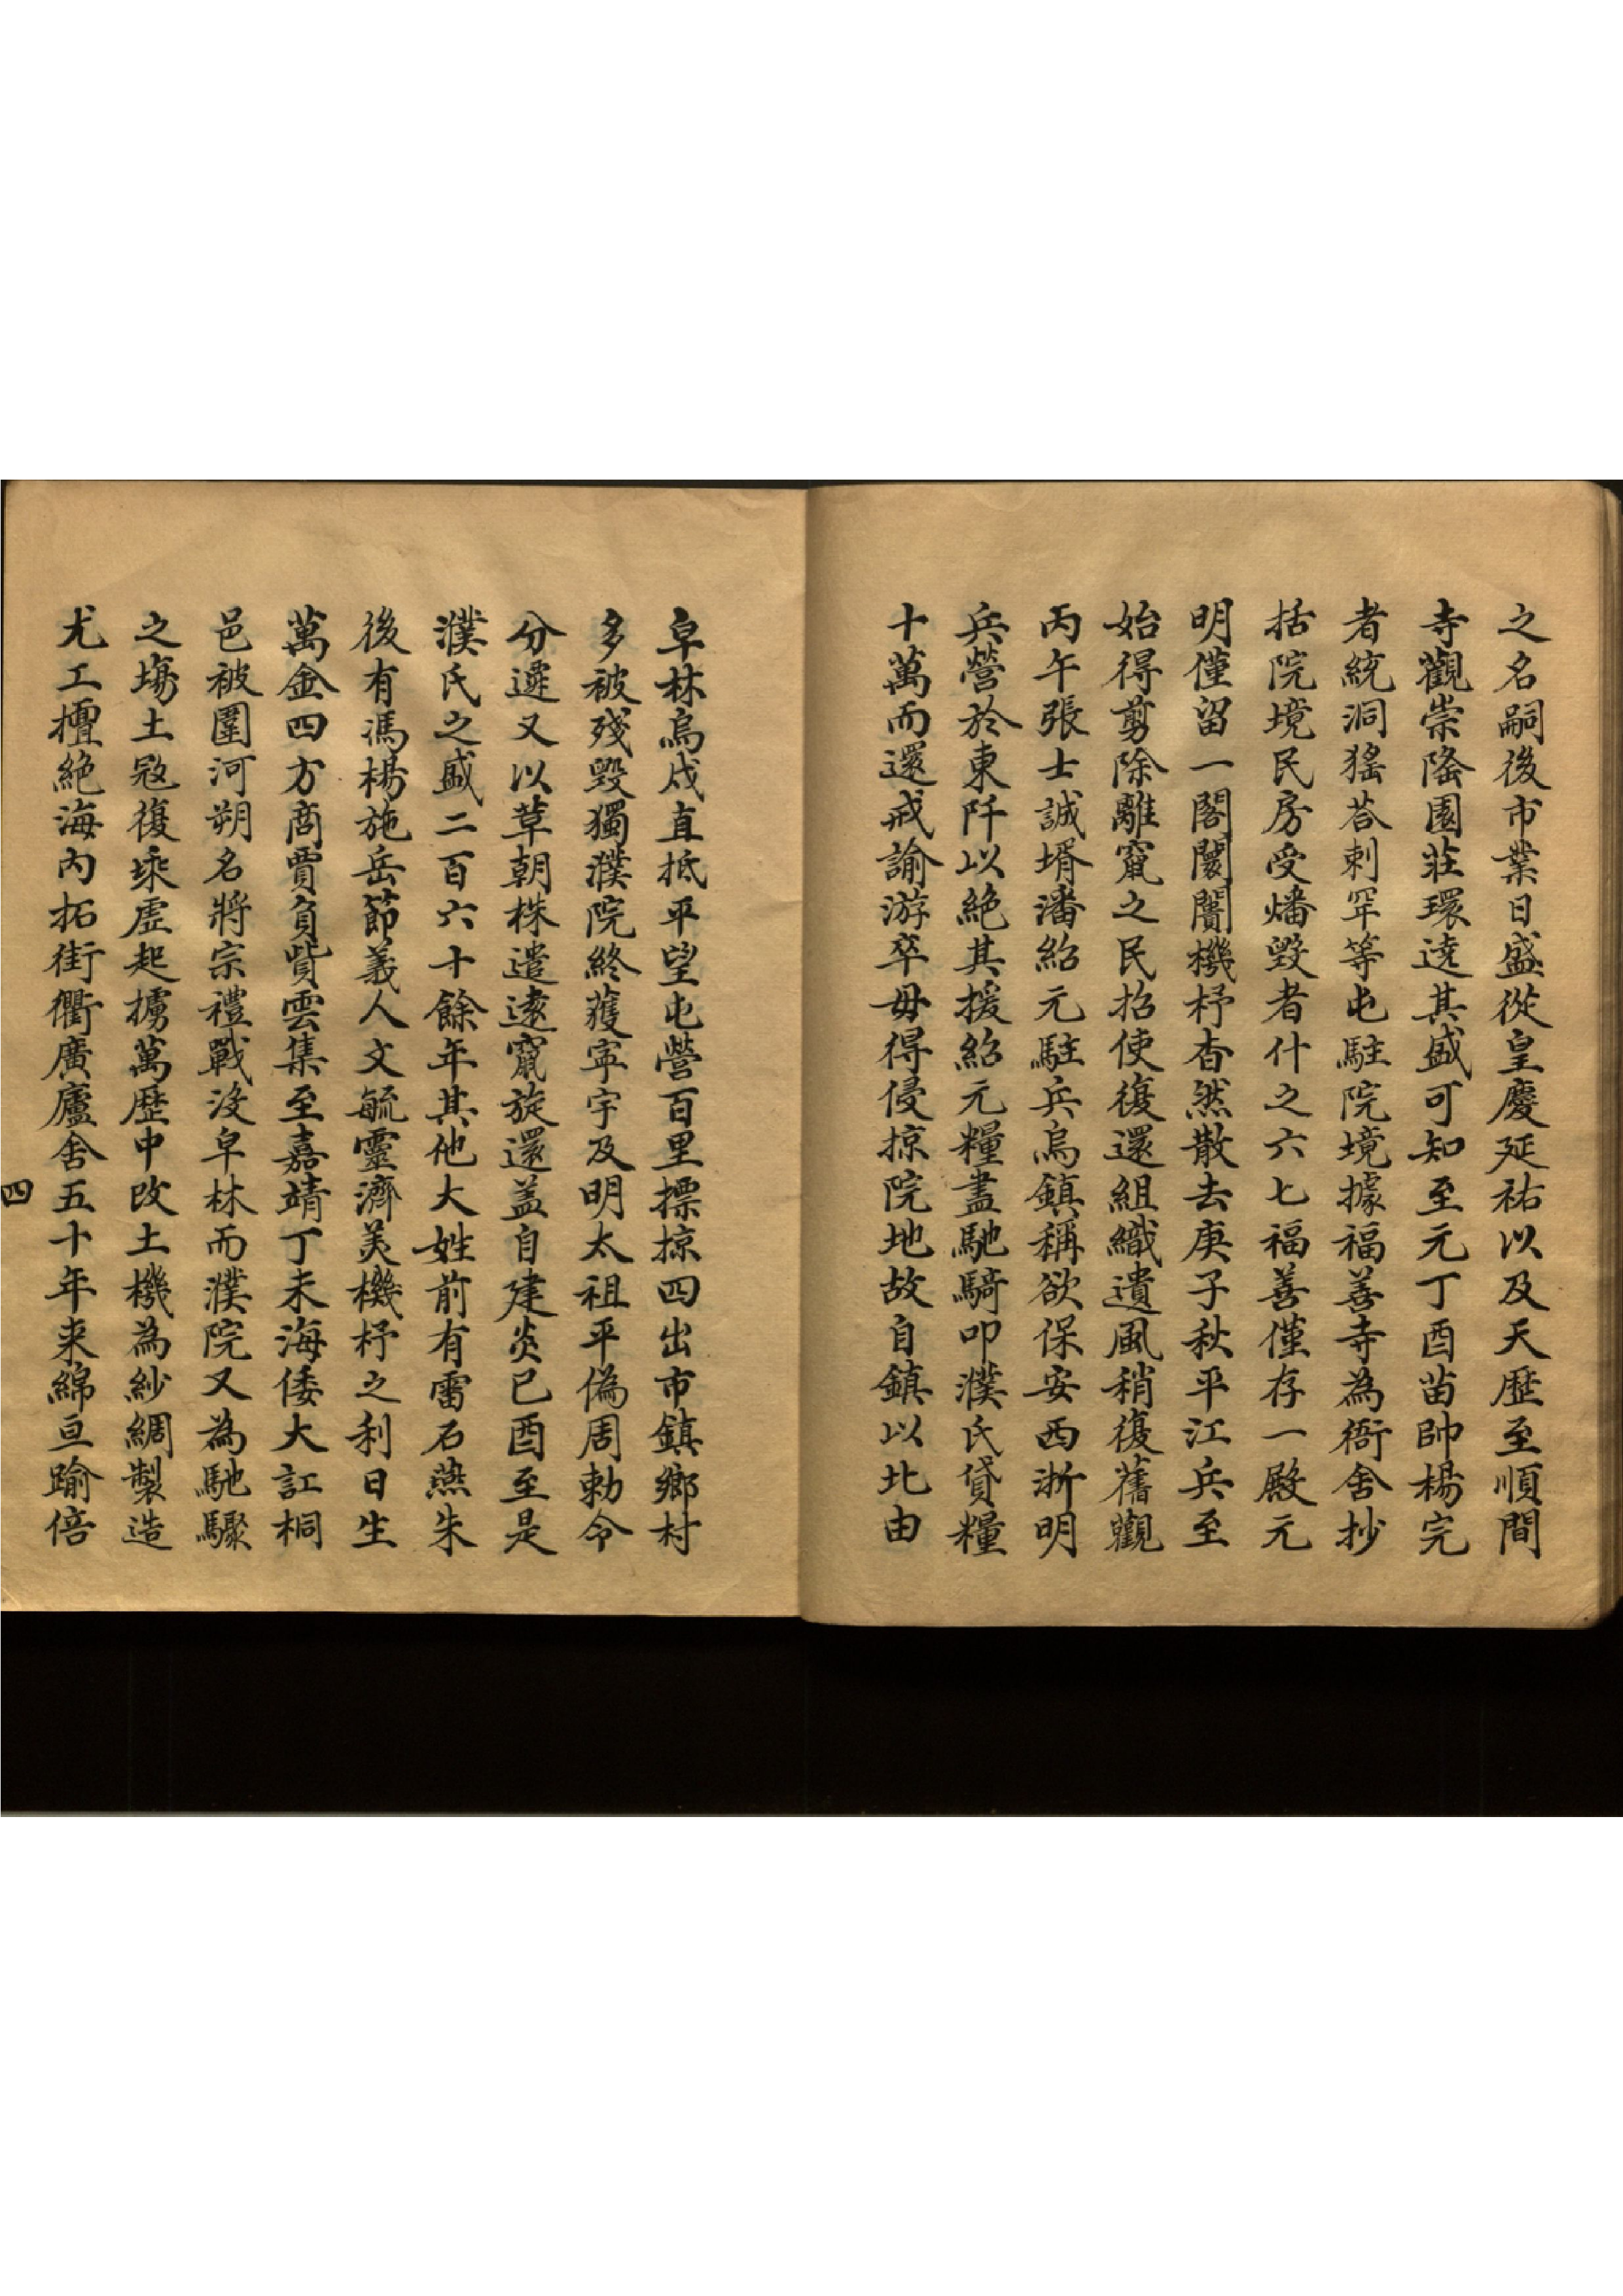 之名嗣後市業日盛從皇慶延祐以及天歷至順間
寺觀崇隆園莊環遶其盛可知至元丁酉苗帥楊完
者統洞猺荅剌罕等屯駐院境據福善寺為衙舍抄
括院境民房受燔毀者什之六七福善僅存一殿元
明僅留一閣闤闠機杼杳然散去庚子秋平江兵至
始得剪除離竄之民招使復還組織遺風稍復舊觀
丙午張士誠壻潘紹元駐兵烏鎮稱欲保安西浙明
兵營於東阡以絕其援紹元糧盡馳騎叩濮氏貸糧
十萬而還戒諭游卒毋得侵掠院地故自鎮以北由
皁林烏戍直抵平望屯營百里摽掠四出市鎮鄉村
多被殘毀獨濮院終獲寧宇及明太祖平偽周勅令
分遷又以草朝株遣遠竄旋還蓋自建炎已酉至是
濮氏之盛二百六十餘年其他大姓前有雷石燕朱
後有馮楊施岳節義人文毓靈濟美機杼之利日生
萬金四方商賈負貲雲集至嘉靖丁未海倭大訌桐
邑被圍河朔名將宗禮戰沒皁林而濮院又為馳驟
之塲土寇復乘虛起擄萬歷中改土機為紗綢製造
尤工擅絕海內拓街衢廣廬舍五十年來綿亘踰倍
四